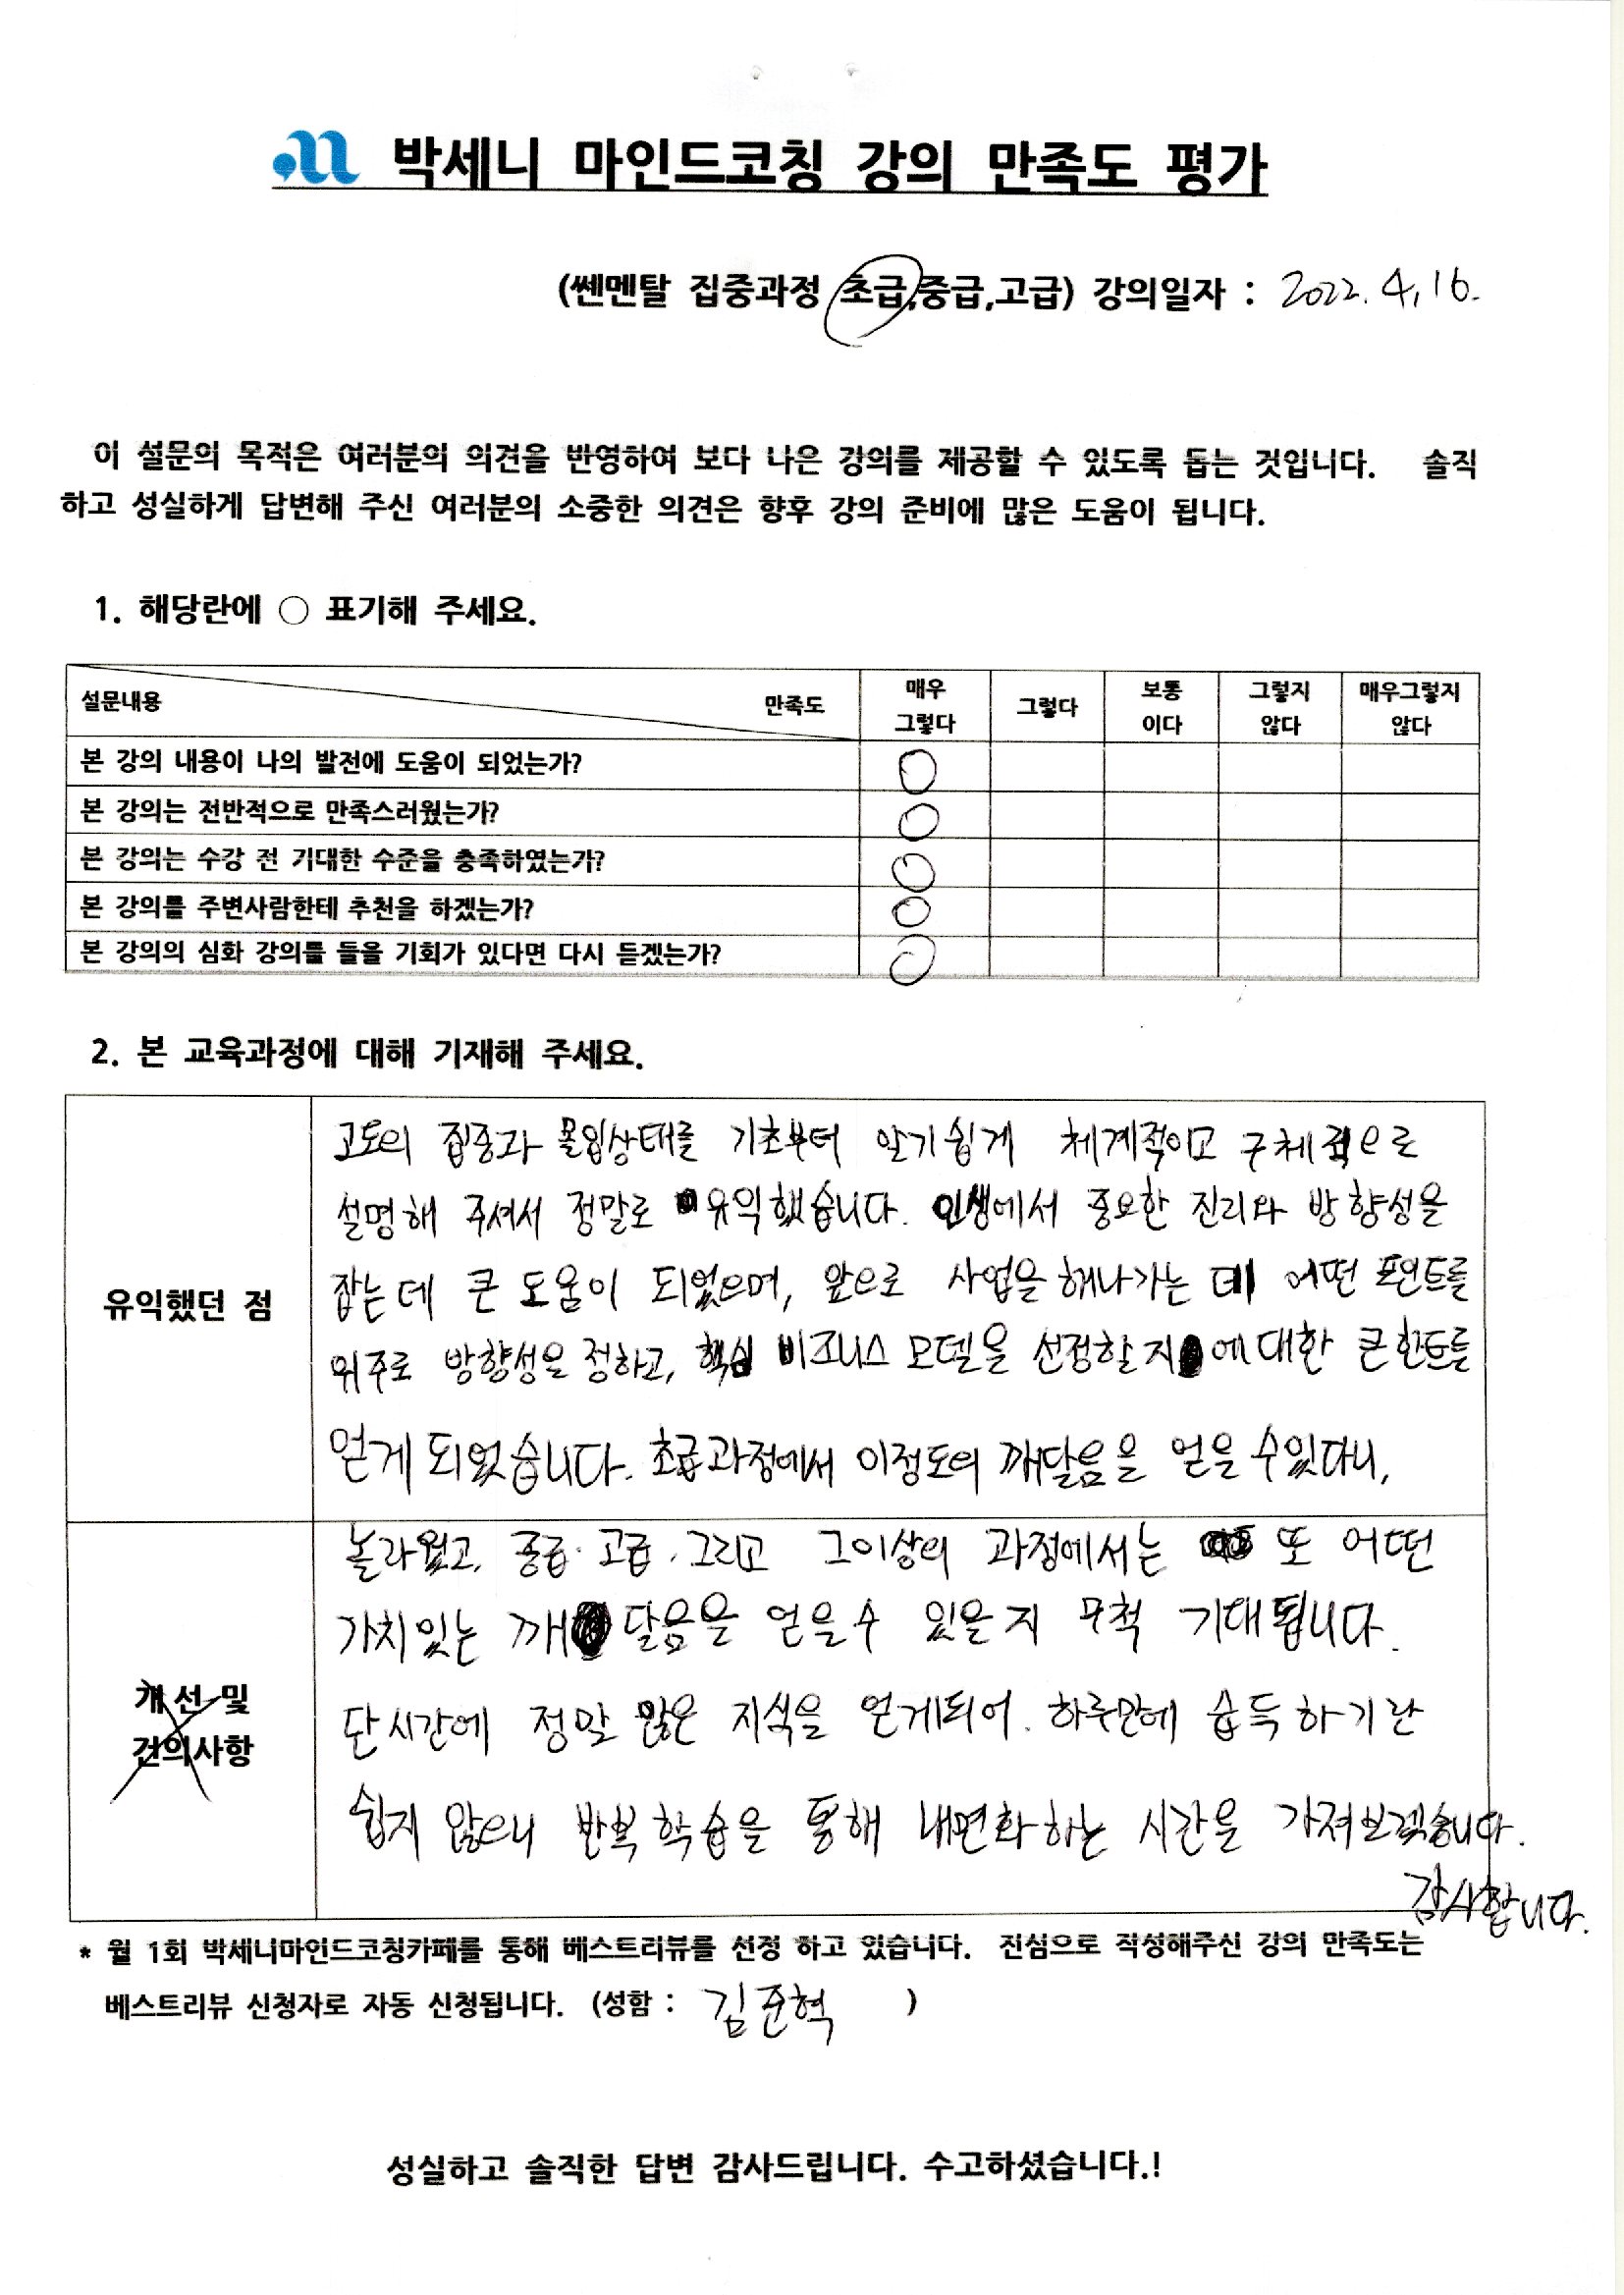 박세니 마인드코칭 강의 만족도 평가
(쎈멘탈 집중과정 초급,중급,고급) 강의일자 : 2022. 4, 16.
이 설문의 목적은 여러분의 의견을 반영하여 보다 나은 강의를 제공할 수 있도록 돕는 것입니다. 솔직
하고 성실하게 답변해 주신 여러분의 소중한 의견은 향후 강의 준비에 많은 도움이 됩니다.
1. 해당란에 ○ 표기해 주세요.
설문내용 만족도 매우 그렇다 그렇다 보통 이다 그렇지 않다 매우그렇지 않다
본 강의 내용이 나의 발전에 도움이 되었는가? ○
본 강의는 전반적으로 만족스러웠는가? ○
본 강의는 수강 전 기대한 수준을 충족하였는가? ○
본 강의를 주변사람한테 추천을 하겠는가? ○
본 강의의 심화 강의를 들을 기회가 있다면 다시 듣겠는가? ○
2. 본 교육과정에 대해 기재해 주세요.
유익했던 점
고도의 집중과 몰입상태를 기초부터 알기쉽게 체계적이고 구체적으로
설명해 주셔서 정말로 유익했습니다. 인생에서 중요한 진리와 방향성을
잡는데 큰 도움이 되었으며, 앞으로 사업을 해나가는 데 어떤 포인트를
위주로 방향성을 정하고, 핵심 비즈니스 모델을 선정할지에 대한 큰 힌트를
얻게 되었습니다. 초급과정에서 이정도의 깨달음을 얻을 수있다니,
개선 및
건의사항
놀라웠고, 중급·고급, 그리고 그이상의 과정에서는 또 어떤
가치있는 깨달음을 얻을수 있을지 무척 기대됩니다.
단시간에 정말 많은 지식을 얻게되어. 하루만에 습득하기란
쉽지 않으니 반복학습을 통해 내면화하는 시간을 가져보겠습니다.
감사합니다.
* 월 1회 박세니마인드코칭카페를 통해 베스트리뷰를 선정 하고 있습니다. 진심으로 작성해주신 강의 만족도는
베스트리뷰 신청자로 자동 신청됩니다. (성함 : 김준혁 )
성실하고 솔직한 답변 감사드립니다. 수고하셨습니다.!